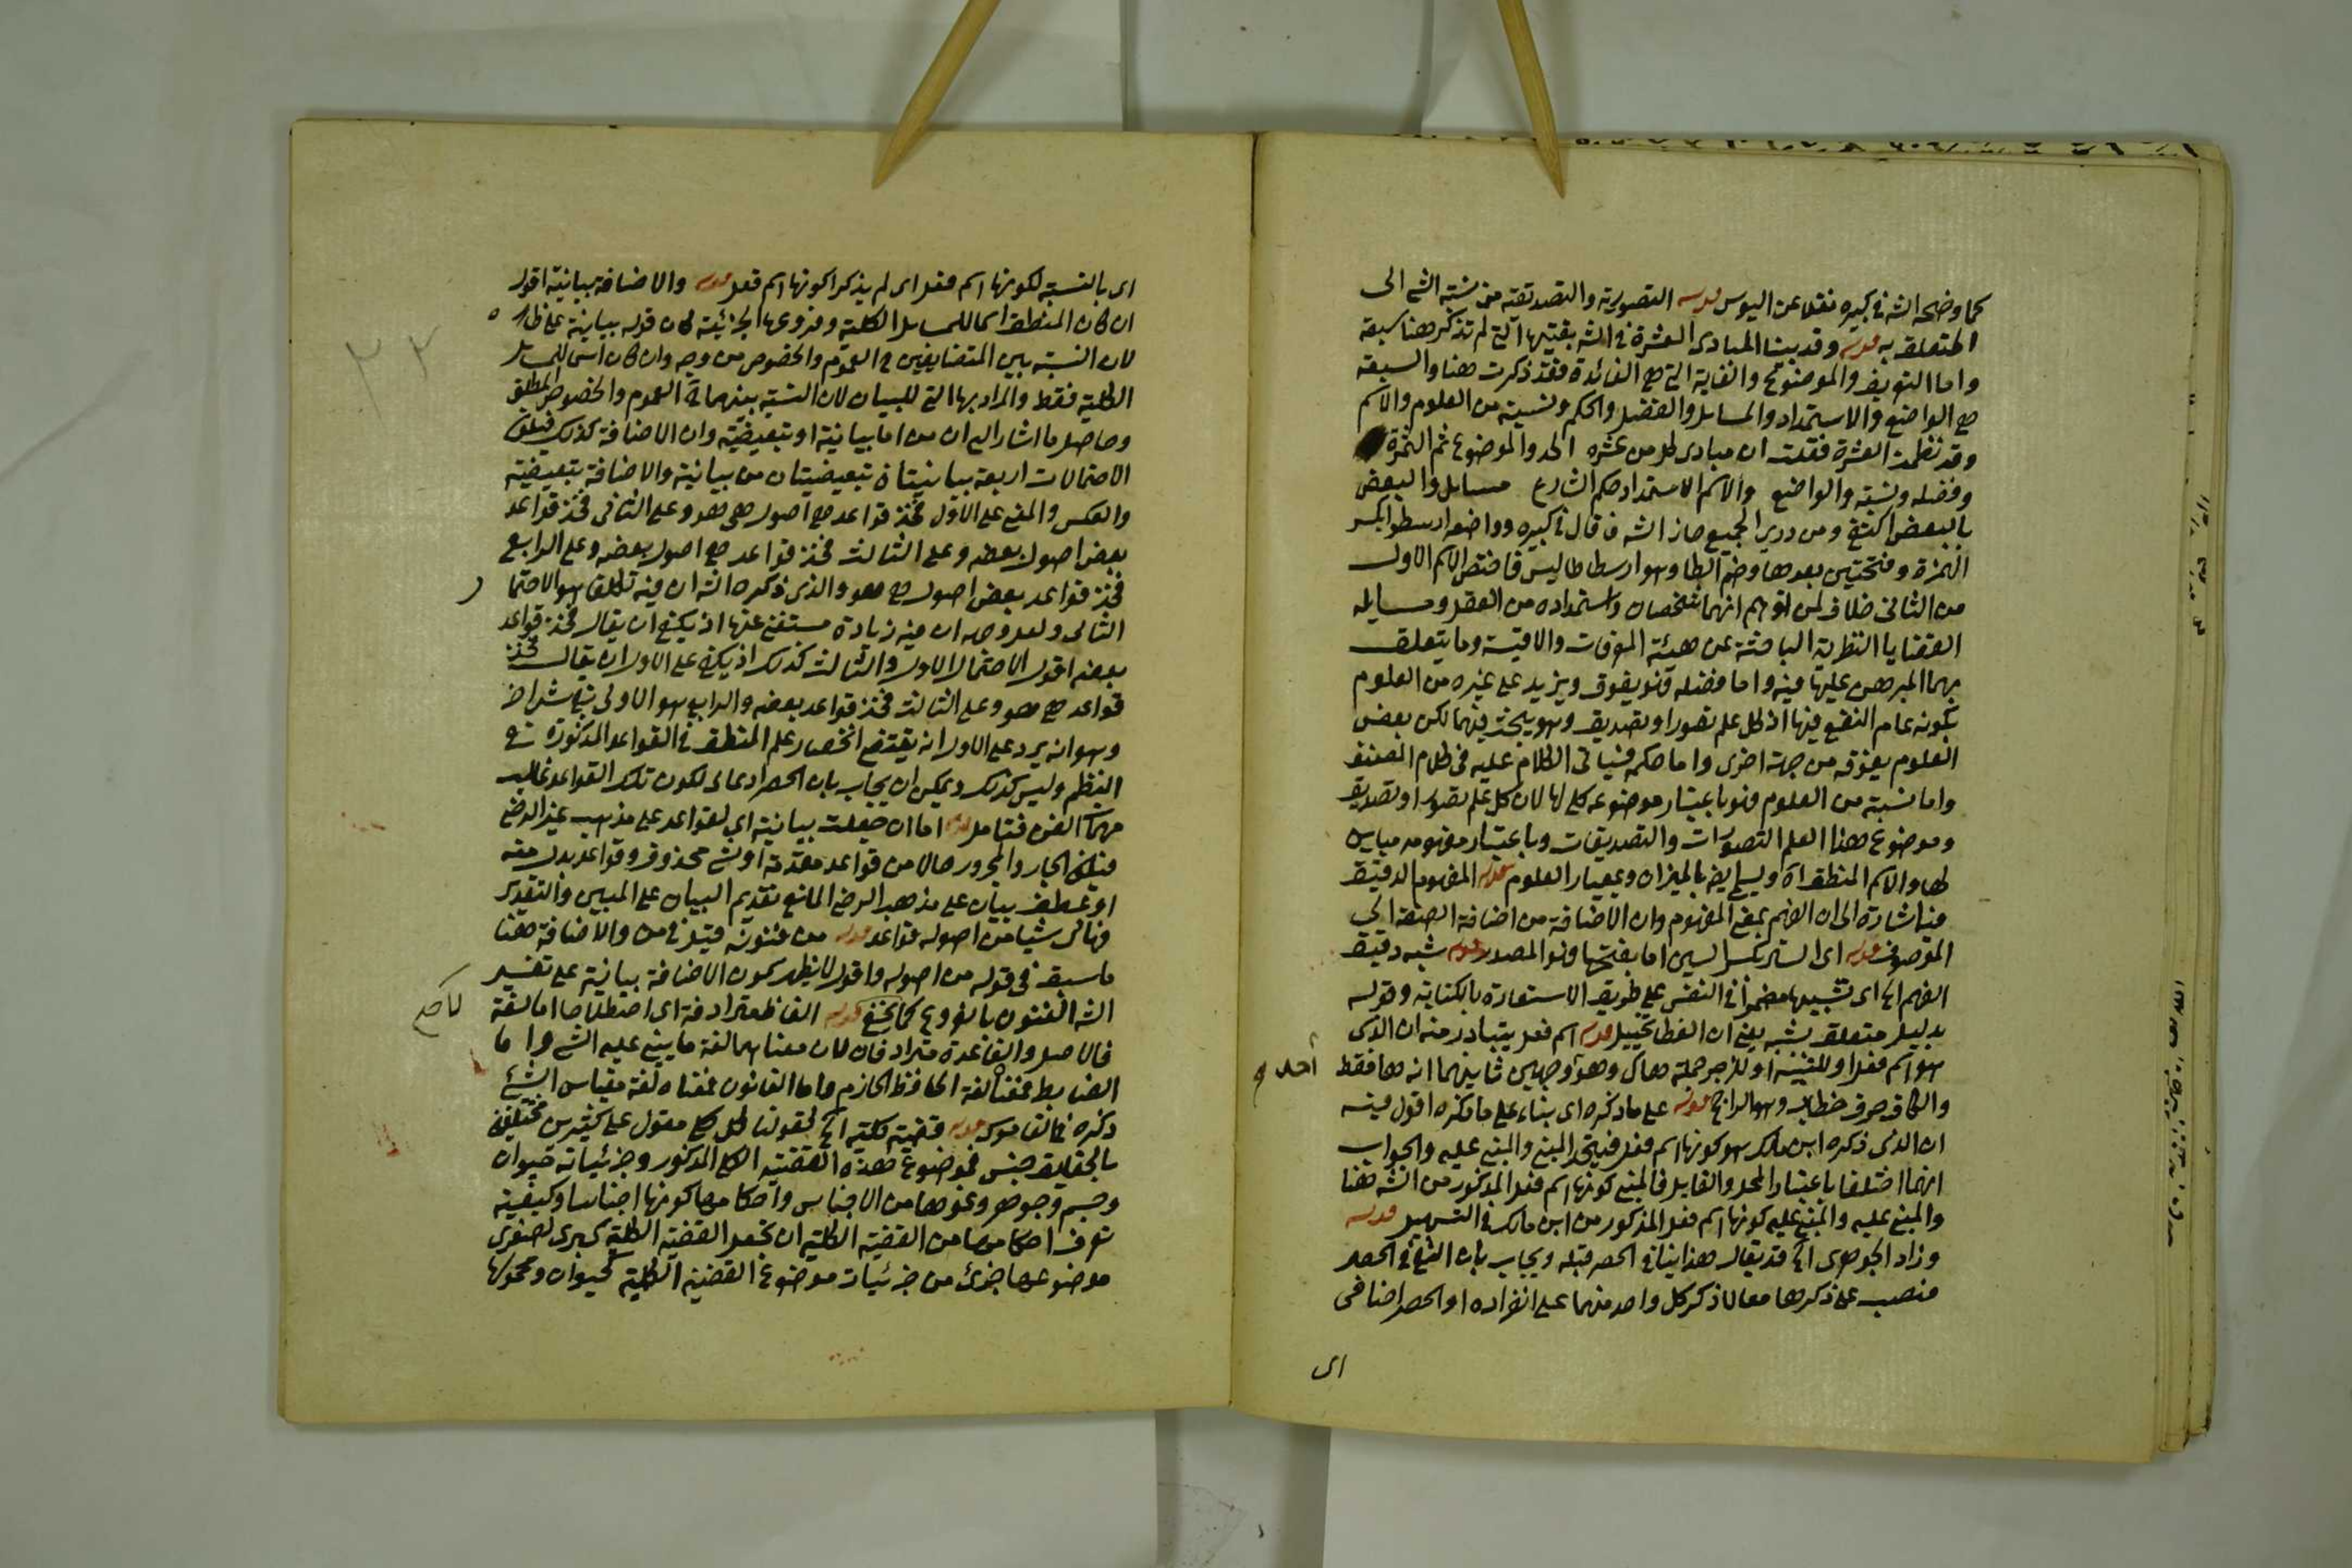 كما وضحه الشه في كبيره نقلا عن اليوسي قوله التصورية والتصديقية من نسبة الشئ الى
المتعلقه به قوله وقد بينا المبادى العشرة في الشه بقيتها التي لم تذكر هنا سبعة
واما التعريف والموضوع والغاية التي هي الفائدة فقد ذكرت هنا والسبعة
هي الواضع والاستمداد والمسايل والفضل والحكم ونسبته من العلوم والاسم
وقد نظمت العشرة فقلت ان مبادى كل من عشره الحد والموضوع ثم الثمرة
وفضله ونسبة والواضع والاسم الاستمداد حكم الشارع مسايل والبعض
بالبعض اكتفى ومن درى الجميع حاز الشه فا قال في كبيره وواضعه ارسطو بكسر
الهمزة وفتحتين بعدها وضم الطا وهو ارسطاطاليس فاختص الاسم الاول
من الثاني خلافا لمن توهم انهما شخصان واستمداده من العقل ومسايله
القضايا النظرية الباحثة عن هيئة المعرفات والاقيسة وما يتعلق
بهما المبرهن عليها فيه واما فضله فهو يفوق ويزيد على غيره من العلوم
بكونه عام النفع فيها اذ كل علم تصور او تصديق وهو يبحث فيهما لكن بعض
العلوم يفوقه من جهة اخرى واما حكمه فسياتى الكلام عليه في كلام المصنف
واما نسبته من العلوم فهو باعتبار موضوعه كلى لها لان كل علم تصور او تصديق
وموضوع هذا العلم التصورات والتصديقات وباعتبار مفهومه مباين
لها والاسم المنطق اه ويسمى ايضا بالميزان وبمعيار العلوم قوله المفهوم الدقيق
فيه اشارة الى ان الفهم بمعنى المفهوم وان الاضافة من اضافة الصفة الى
الموصوف قوله اى الستر بكسر السين اما بفتحها فهو المصدر قوله شبه دقيق
الفهم الخ اى تشبيها مضمرا في النفس على طريق الاستعارة بالكناية وقوله
بدليل متعلق بشبه يعنى ان الغطا تخييل قوله اسم فعل يتبادر منه ان الذى
هو اسم فعل او للتنبيه او للزجر جملة هاك وهو احد وجهين ثانيهما انه ها فقط
والكاف حرف خطاب وهو الراجح قوله على ما ذكره اى بناء على ما ذكره اقول فيه
ان الذى ذكره ابن مالك هو كونها اسم فعل فيتحد المبنى والمبنى عليه والجواب
انهما اختلفا باعتبار المحل والقايل فالمبنى كونها اسم فعل المذكور من الشه هنا
والمبنى عليه والمبنى عليه كونها اسم فعل المذكور من ابن مالك في التسهيل قوله
وزاد الجوهرى الخ قد يقال هذا ينافى الحصر قبله ويجاب بان النفى في الحصر
منصب على ذكرها معا لا ذكر كل واحد منهما على انفراده او الحصر اضافى
اى
اى بالنسبة لكونها اسم فعل اى لم يذكر الا كونها اسم فعل قوله والاضافة بيانية اقول
ان كان المنطق اسما للمسايل الكلية وفروعها الجزئية كان قوله بيانية على ظاهره
لان النسبة بين المتضايفين ح العموم والخصوص من وجه وان كان اسما للمسايل
الكلية فقط والمراد بها التى للبيان لان النسبة بينهما ح العموم والخصوص المطلق
وحاصل ما اشار اليه ان من اما بيانية او تبعيضية وان الاضافة كذلك فتلك
الاحتمالات اربعة بيانيتان تبعيضيتان من بيانية والاضافة تبعيضية
والعكس والمعنى على الاول فخذ قواعد هي اصول هى هو وعلى الثانى فخذ قواعد
بعض اصول بعضه وعلى الثالث فخذ قواعد هي اصول بعضه وعلى الرابع
فخذ قواعد بعض اصول هي هو والذى ذكره الشه ان فيه تكلف هو الاحتمال
الثانى ولعل وجهه ان فيه زيادة مستغنى عنها اذ يكفى ان يقال فخذ قواعد
بعضه اقول الاحتمال الاول والثالث كذلك اذ يكفى على الاول ان يقال فخذ
قواعد هي هو وعلى الثالث فخذ قواعد بعضه والرابع هو الاولى
وهو انه يرد على الاول انه يقتضى انحصار علم المنطق في القواعد المذكورة في
النظم وليس كذلك ويمكن ان يجاب بان الحصر ادعائى لكون تلك القواعد غالب
مهمات الفن فتامل قوله اما ان جعلت بيانية اى لقواعد على مذهب غير الرضى
فيكون الجار والمجرور حالا من قواعد مقدمة او شئ محذوف وقواعد بدل منه
او عطف بيان على مذهب الرضى المانع تقديم البيان على المبين والتقدير
فهاك شيا من اصوله قواعد قوله من فنونه قيل في من والاضافة هنا
ما سبق في قوله من اصوله واقول لا يظهر كون الاضافة بيانية على تفسير
الشه الفنون بالفروع كما يخفى قوله الفاظ مترادفة اى اصطلاحا اما لغة
فالاصل والقاعدة مترادفان لان معناهما لغة ما ينبنى عليه الشئ واما
الضابط فمعناه لغة الحافظ الحازم واما القانون فمعناه لغة مقياس الشئ
ذكره في القاموس قوله قضية كلية الخ كقولنا كل كلى مقول على كثيرين مختلفين
بالحقايق جنس فموضوع هذه القضية الكلى المذكور وجزئياته حيوان
وجسم وجوهر ونحوها من الاجناس واحكامها كونها اجناسا وكيفية
تعرف احكامها من القضية الكلية ان تجعل القضية الكلية كبرى لصغرى
موضوعها جزئ من جزئيات موضوع القضية الكلية كحيوان ومحمولها